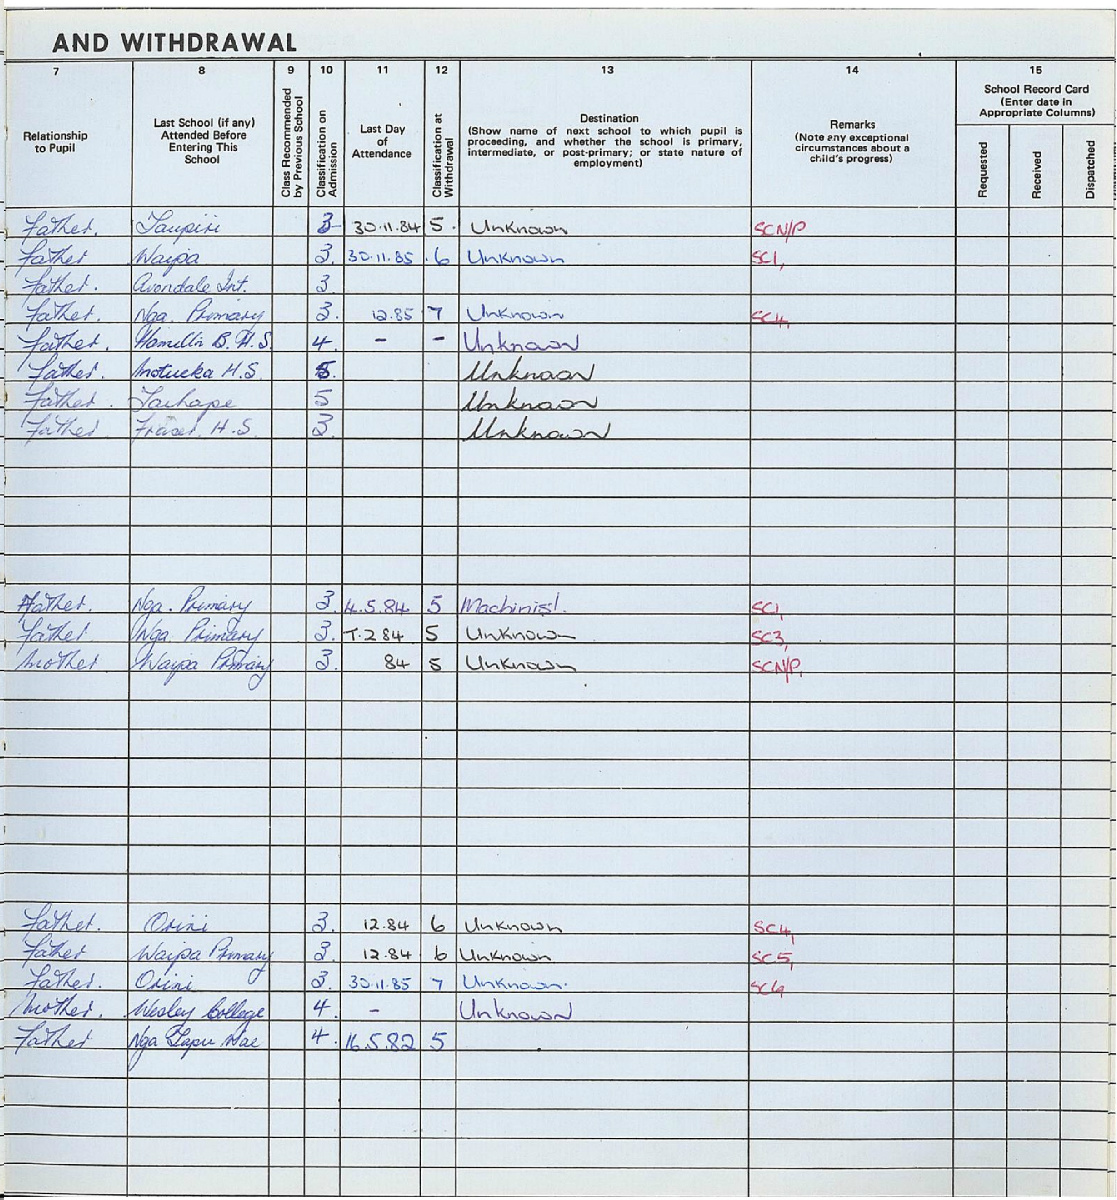 AND WITHDRAWAL
7 8 9 10 11 12 13 14 15
Relationship to Pupil
Last School (if any) Attended Before Entering This School
Class Recommended by Previous School
Classification on Admission
Last Day of Attendance
Classification at Withdrawal
Destination (Show name of next school to which pupil is proceeding, and whether the school is primary, intermediate, or post-primary; or state nature of employment)
Remarks (Note any exceptional circumstances about a child's progress)
School Record Card (Enter date in Appropriate Columns)
Requested
Received
Dispatched
Father. Taupiri 3 30.11.84 5. Unknown SCN/P
Father Waipa 3. 30.11.85 .6 Unknown SC1,
Father. Avondale Int. 3
Father. Nga. Primary 3. 12.85 7 Unknown SC4,
Father. Hamilton B.H.S. 4. - - Unknown
Father. Motueka H.S. 5. Unknown
Father. Taihape 5 Unknown
Father. Fraser H.S. 3. Unknown
Father. Nga. Primary 3. 4.5.84 5 Machinist. SC1
Father Nga Primary 3. T.2 84 5 Unknown SC3,
Mother Waipa Primary 3. 84 5 Unknown SCN/P,
Father. Orini 3. 12.84 6 Unknown SC4,
Father Waipa Primary 3. 12.84 6 Unknown SC5,
Father. Orini 3. 30.11.85 7 Unknown.
Mother. Wesley College 4. - Unknown
Father Nga Tapu Wae 4. 16.5.82 5